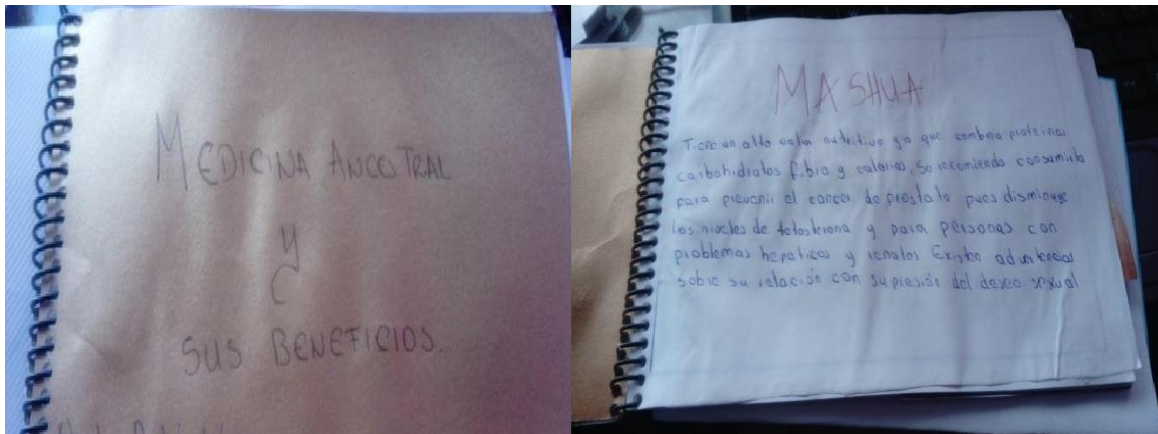 MEDICINA ANCESTRAL
y
SUS BENEFICIOS.
MASHUA
Tiene un alto valor nutritivo ya que combina proteinas
carbohidratos fibra y calorias, Se recomienda consumirlo
para prevenir el cancer de prostata pues disminuye
los niveles de totosterona y para personas con
problemas hepaticos y renales Existen advertencias
sobre su relación con supresión del deseo sexual